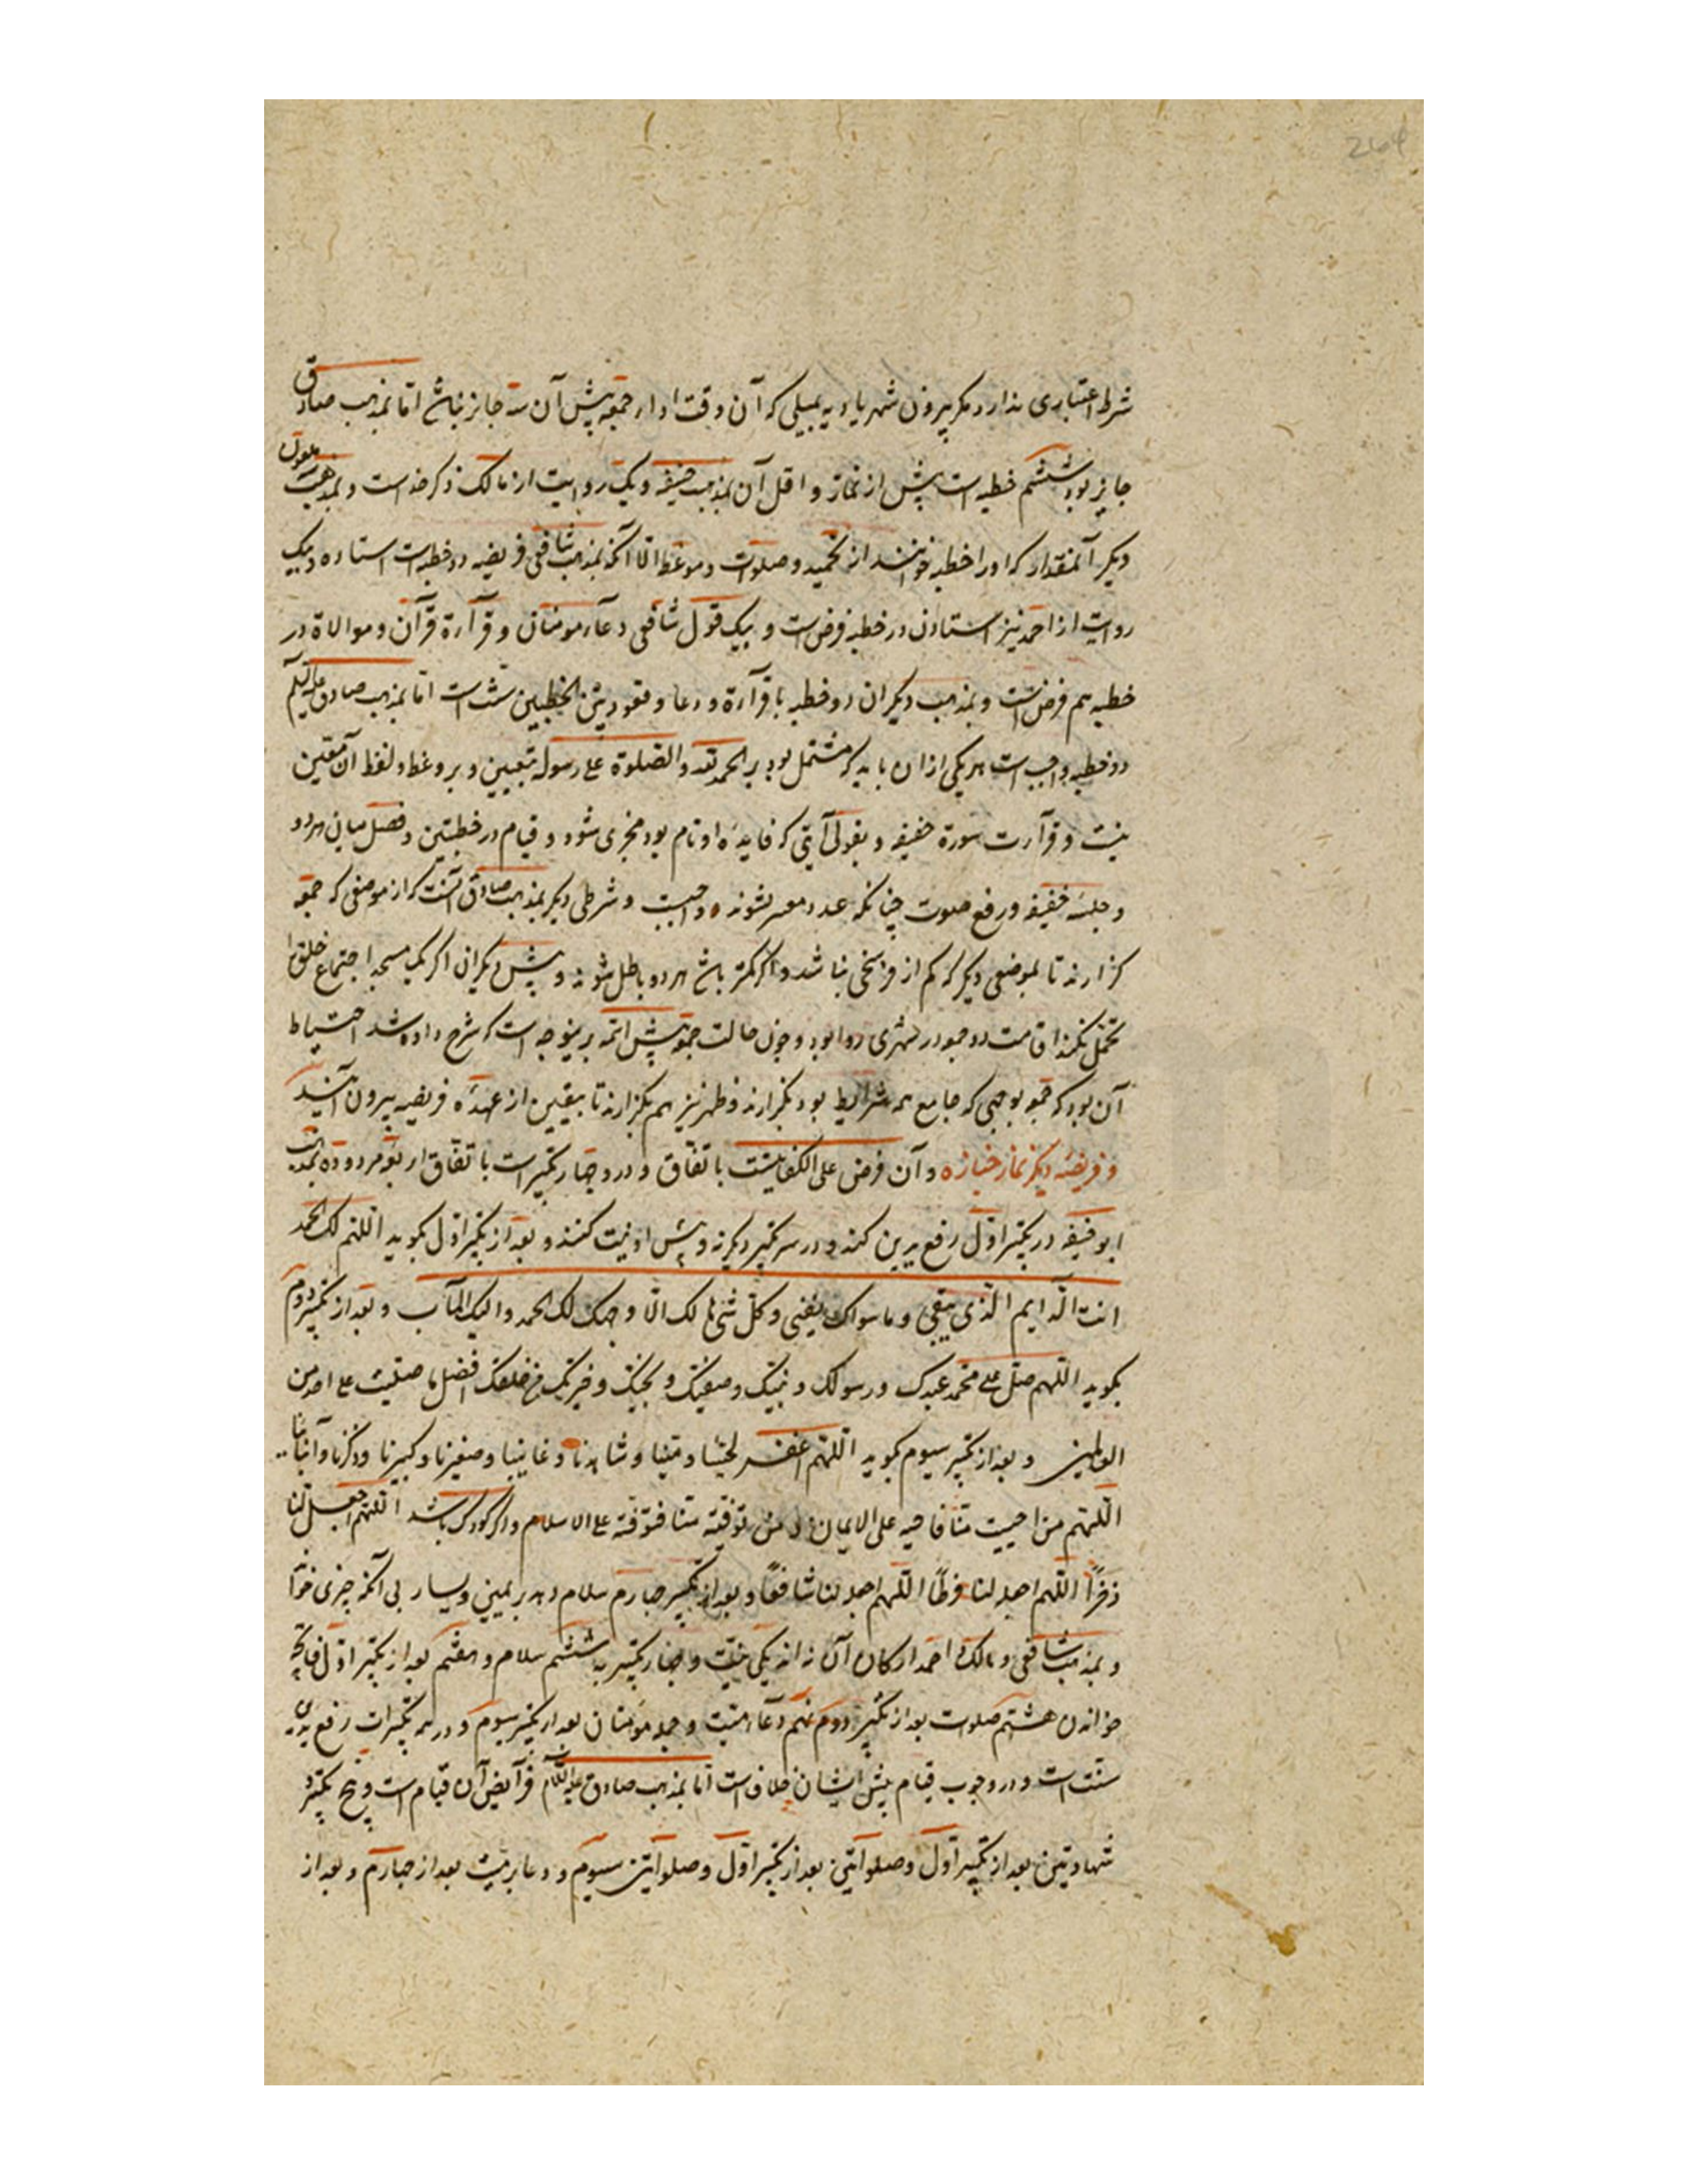 264
شرط اعتباری ندارد مگر بیرون شهر یا دیه بمیلی که آن وقت ادای جمعه پیش آن سه جایز نباشد اما بمذهب صادق
جایز بود ششم خطبه است پیش از نماز و اقل آن بمذهب ابوحنیفه و یک روایت از مالک ذکر خداست و بمذهب
دیگر آنمقدار که او را خطبه خوانند از تحمید و صلوات و موعظه الا آنکه بمذهب شافعی فریضه دو خطبه است استاده و بیک
روایت از احمد نیز استادن در خطبه فرض است و بیک قول شافعی دعاء مومنان و قرآءة قرآن و موالاة در
خطبه هم فرض است و بمذهب دیگران دو خطبه با قرآءة و دعا و قعود بین الخطبتین سنت است اما بمذهب صادق علیه السلم
دو خطبه واجب است هر یکی از آن باید که مشتمل بود بر الحمد لله و الصلوة علی رسوله بتعیین و بر وعظ و لفظ آن متعین
نیست و قرآءت سورة خفیفه و بقولی آیتی که فایدهٔ او تام بود مجزی شود و قیام در خطبتین و فصل میان هر دو
و جلسهٔ خفیفه و رفع صوت چنانکه عدد معتبر بشنوند واجبست و شرطی دیگر بمذهب صادق آنست که از موضعی که جمعه
گزارند تا بموضعی دیگر که کم از فرسخی نباشد و اگر کمتر باشد هر دو باطل شوند و پیش دیگران اگر یک مسجد اجتماع خلق را
تحمل نکند اقامت دو جمعه در شهری روا بود و چون حالت جمعه پیش ائمه برینوجه است که شرح داده شد احتیاط
آن بود که جمعه بوجهی که جامع همه شرایط بود بگزارند و ظهر نیز هم بگزارند تا بیقین از عهدهٔ فریضه بیرون آیند
و فریضهٔ دیگر نماز جنازه و آن فرض علی الکفایتست باتفاق و درو چهار تکبیر است باتفاق اربعه مر دو ده بمذهب
ابوحنیفه در تکبیر اول رفع یدین کنند و در سه تکبیر دیگر نه و پیش از نیت کنند و بعد از تکبیر اول بگوید اللهم لک الحمد
انت الدایم الذی یبقی و ما سواک یفنی و کل شئ هالک الا وجهک لک الحمد و الیک المآب و بعد از تکبیر دوم
بگوید اللهم صل علی محمد عبدک و رسولک و نبیک و صفیک و نجیک و خیرتک من خلقک افضل ما صلیت علی احد من
العالمین و بعد از تکبیر سیوم بگوید اللهم اغفر لحینا و میتنا و شاهدنا و غایبنا و صغیرنا و کبیرنا و ذکرنا و انثانا
اللهم من احییت منا فاحیه علی الایمان و من توفیته منا فتوفه علی الاسلام و اگر کودک باشد اللهم اجعله لنا
ذخرًا اللهم اجعله لنا فرطًا اللهم اجعله لنا شافعًا و بعد از تکبیر چهارم سلام دهد بر یمین و یسار بی آنکه چیزی خواند
و بمذهب شافعی و مالک و احمد ارکان آن نه اند یکی نیت و چهار تکبیر به ششم سلام و هفتم بعد از تکبیر اول فاتحه
خواندن هشتم صلوت بعد از تکبیر دوم نهم دعاء میت و جمله مومنان بعد از تکبیر سیوم و در همه تکبیرات رفع یدین
سنت است و در وجوب قیام پیش ایشان خلاف است اما بمذهب صادق علیه السلام فرآیض آن قیام است و پنج تکبیر و
شهادتین بعد از تکبیر اول و صلوات بعد از تکبیر اول و صلوات سیوم و دعا بر میت بعد از چهارم و بعد از